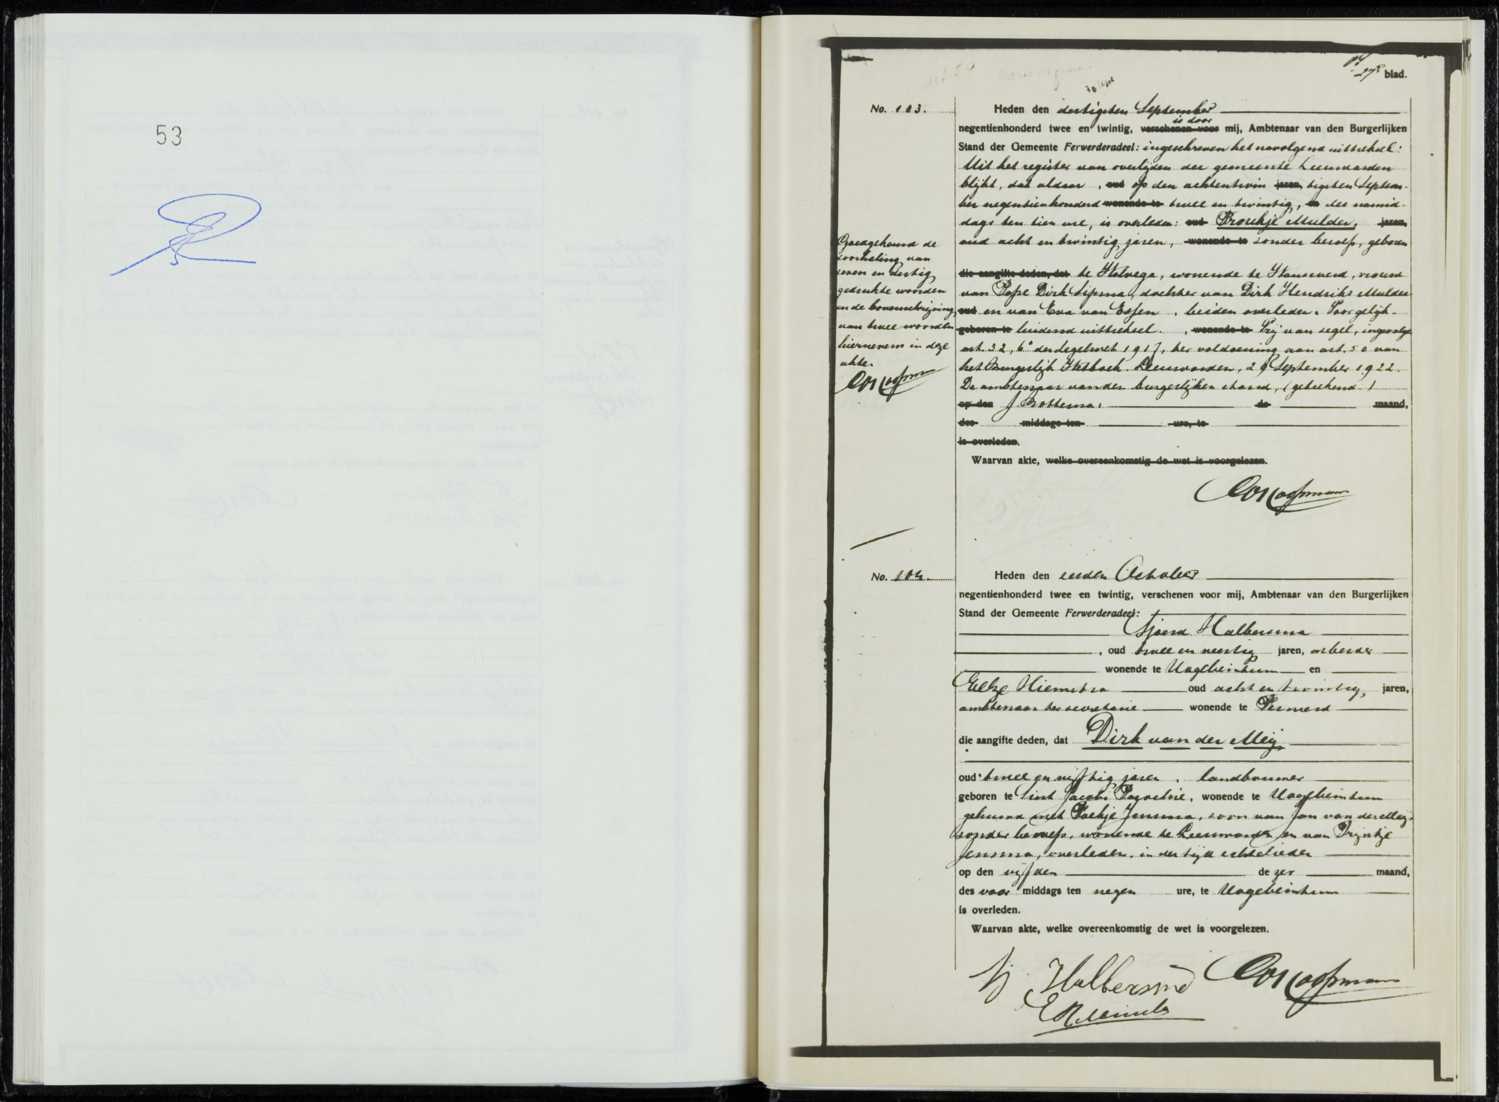 53
27e blad.
No. 103.
Heden den dertigsten September
is door
negentienhonderd twee en twintig, verschenen voor mij, Ambtenaar van den Burgerlijken
Stand der Gemeente Ferwerderadeel: ingeschreven het navolgend uittreksel:
Uit het register van overlijden der gemeente Leeuwarden
blijkt, dat aldaar, oud op den achtentwin jaren, tigsten Septem-
ber negentienhonderd wonende te twee en twintig, en des namid-
dags ten tien ure, is overleden: oud Froukje Mulder, jaren,
oud acht en twintig jaren, wonende te zonder beroep, geboren
die aangifte deden, dat te Wolvega, wonende te Stanserd, vrouw
van Pope Dirk Sipma, dochter van Dirk Hendriks Mulder
oud en van Eva van Essen, beiden overleden. Voor gelijk-
geboren te luidend uittreksel. , wonende te Vrij van zegel, ingevolge
art. 32, 6° der Zegelwet 1917, ter voldoening aan art. 50 van
het Burgerlijk Wetboek. Leeuwarden, 29 September 1922.
De ambtenaar van den burgerlijken stand, (geteekend)
op den J Bottema. te maand,
des middags ten ure, te
is overleden.
Waarvan akte, welke overeenkomstig de wet is voorgelezen.
Goedgekeurd de
doorhaling van
zeven en dertig
gedrukte woorden
in de bovenschrijving
van twee woorden
hiernevens in deze
akte.
Koopmans
Koopmans
No. 104.
Heden den zesden October
negentienhonderd twee en twintig, verschenen voor mij, Ambtenaar van den Burgerlijken
Stand der Gemeente Ferwerderadeel:
Sjoerd Halbersma
, oud twee en veertig jaren, arbeider
wonende te Hogebeintum en
Eelze Hiemstra oud acht en twintig, jaren,
ambtenaar ter secretarie wonende te Ferwerd
die aangifte deden, dat Dirk van der Meij
oud twee en vijftig jaren, landbouwer
geboren te Sint Jacobi Parochie, wonende te Hogebeintum
gehuwd met Baukje Jensma, zoon van Jan van der Meij,
zonder beroep, wonende te Leeuwarden en van Trijntje
Jensma, overleden, in der tijd echtelieden
op den vijfden dezer maand,
des voor middags ten negen ure, te Hogebeintum
is overleden.
Waarvan akte, welke overeenkomstig de wet is voorgelezen.
Sj Halbersma Koopmans
E Hiemstra